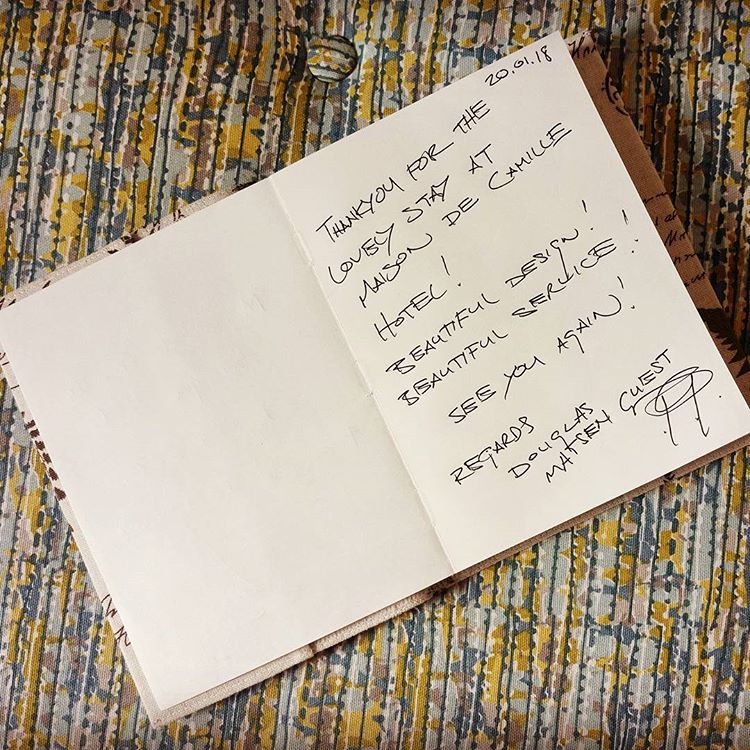 20.01.18
THANKYOU FOR THE
LOVELY STAY AT
MAISON DE CAMILLE
HOTEL!
BEAUTIFUL DESIGN!
BEAUTIFUL SERVICE!
SEE YOU AGAIN!
REGARDS
DOUGLAS
MATSEN GUEST